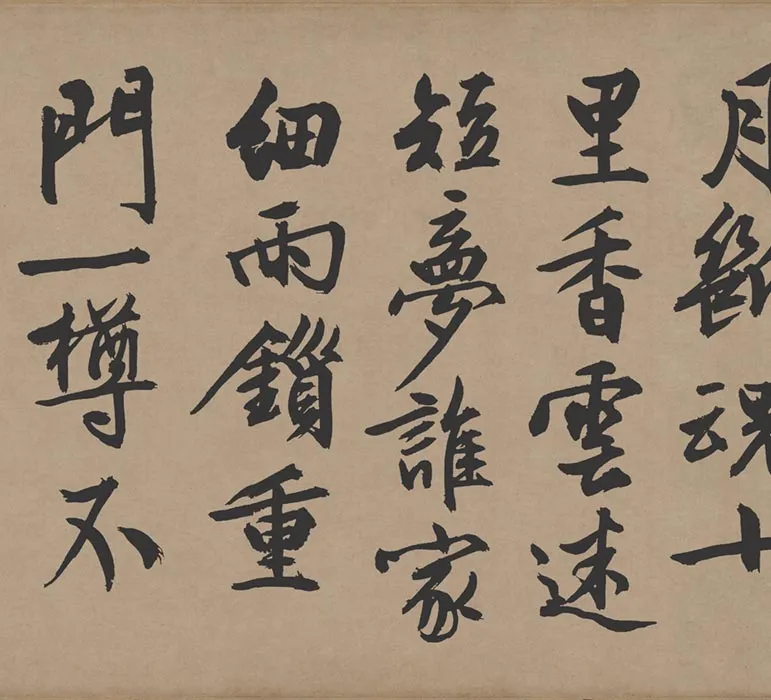 月斷魂十
里香雲迷
短夢誰家
細雨鎖重
門一樽不